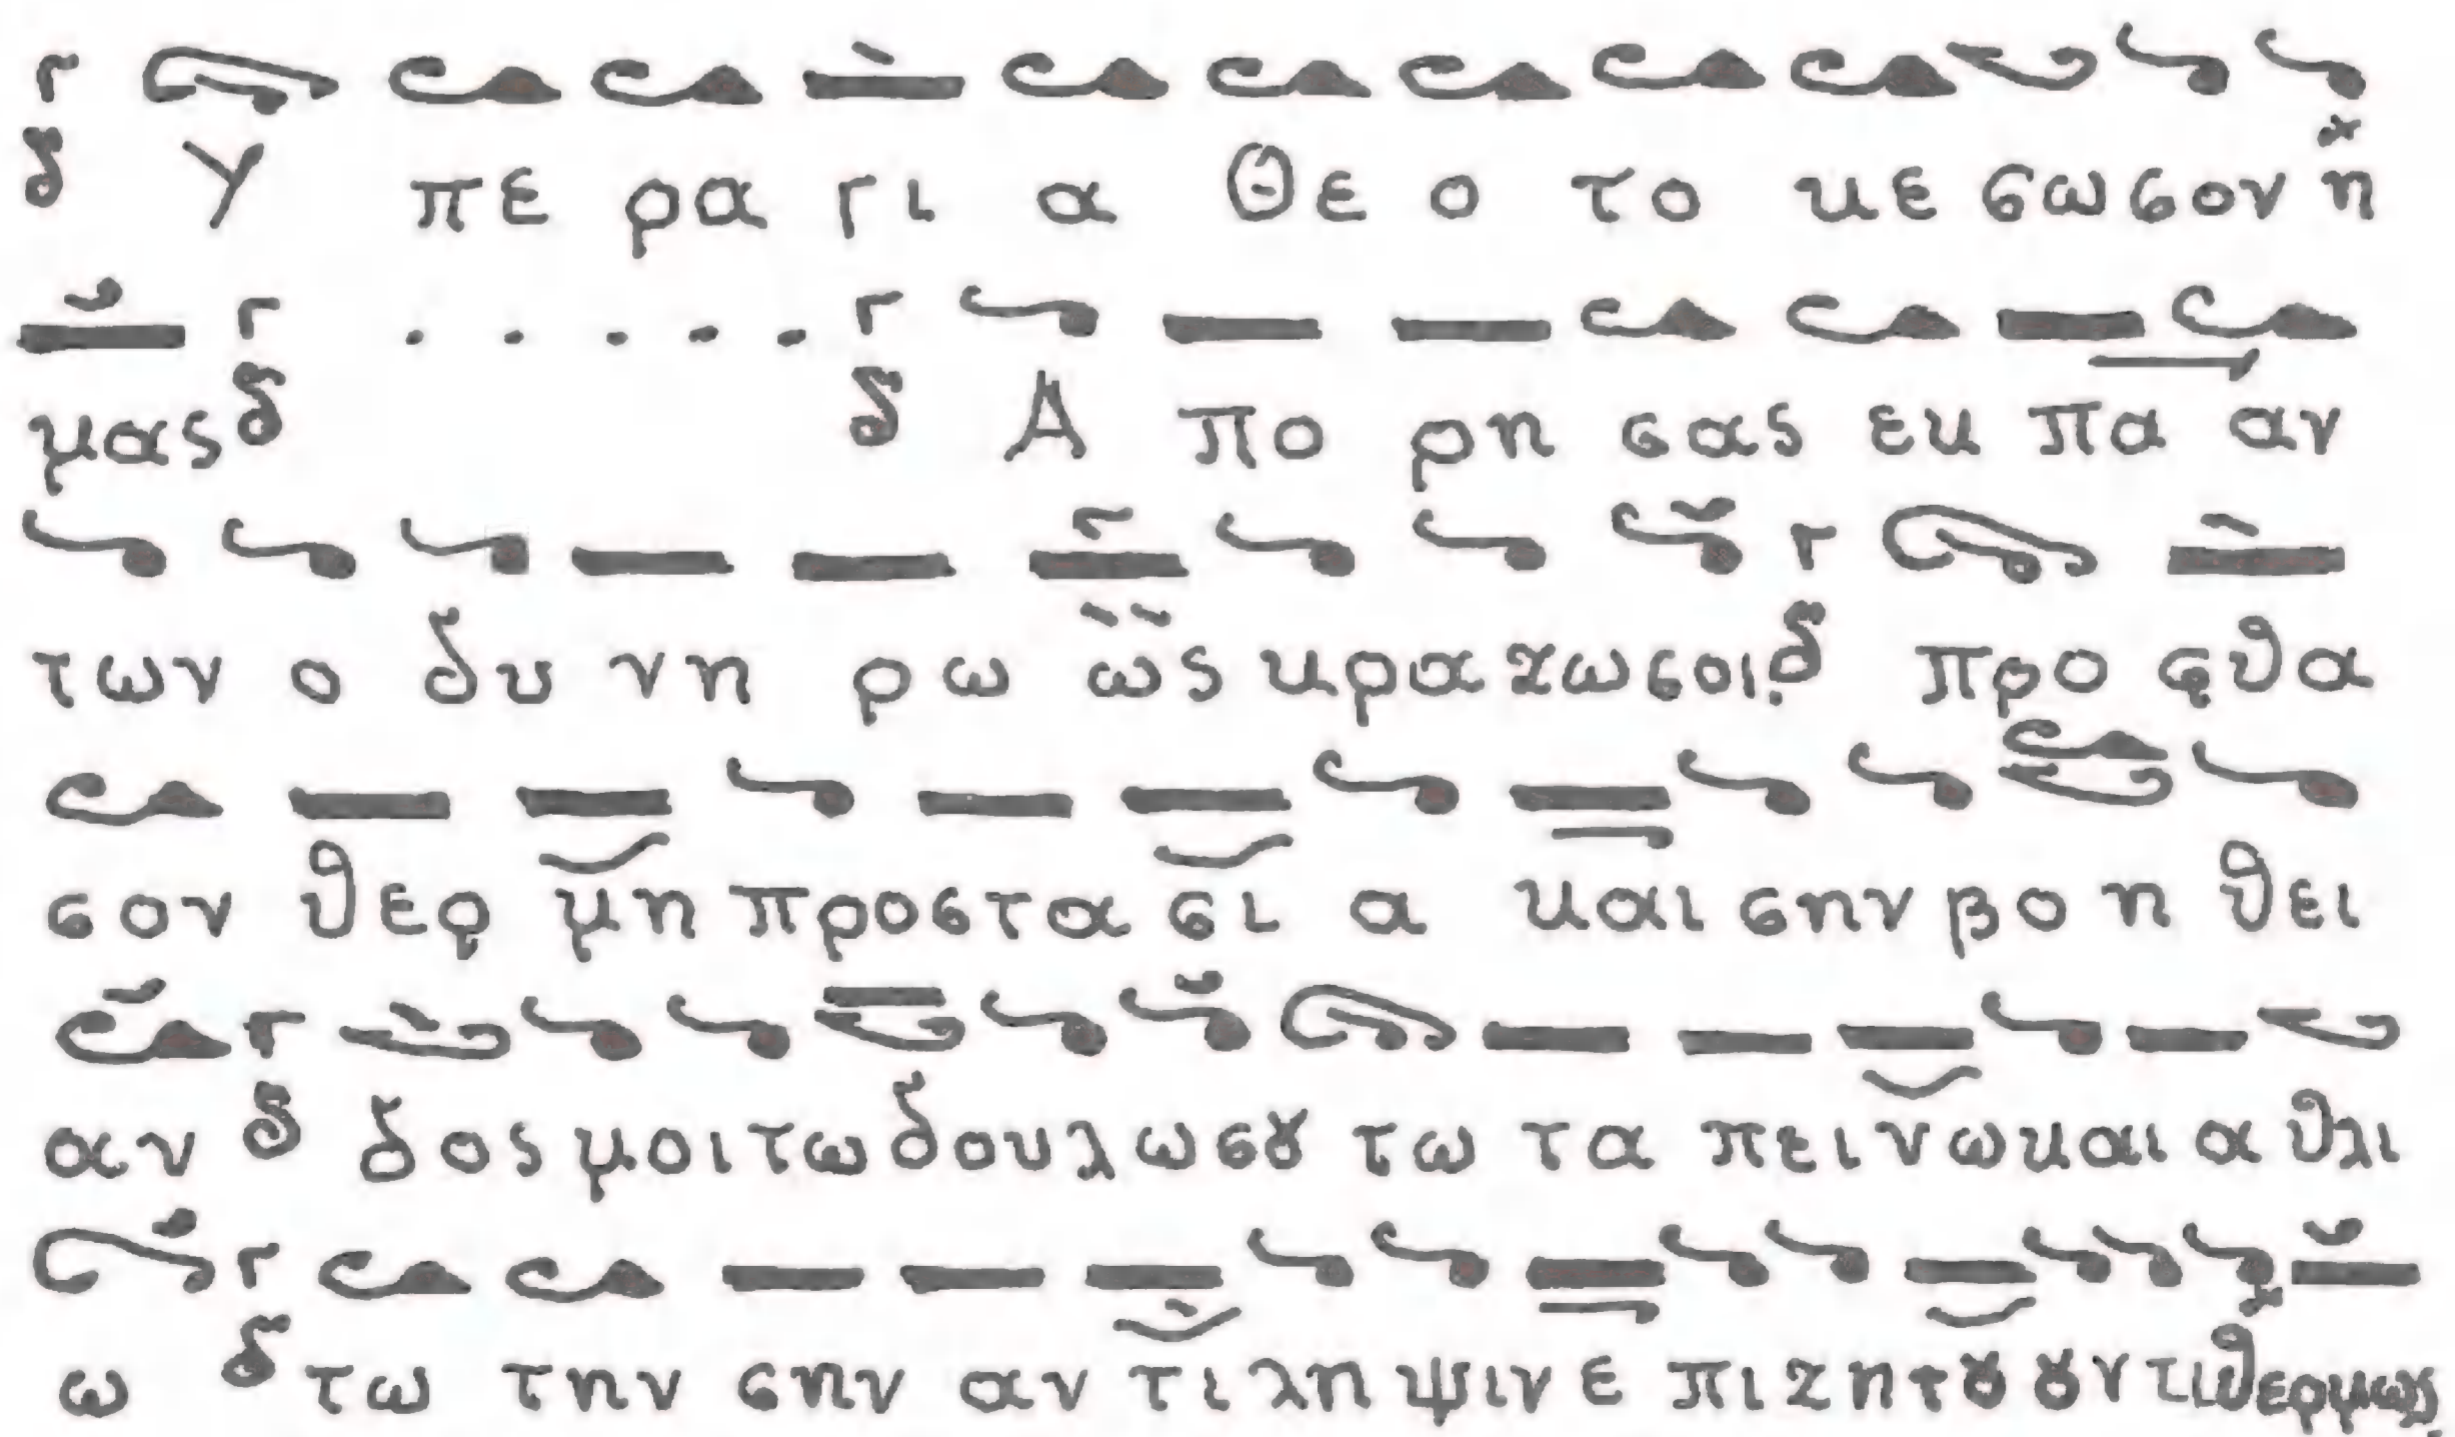 δ Υ πε ρα γι α Θε ο το κε σω σον η
μας δ . . . . . δ Α πο ρη σας εκ πα αν
των ο δυ νη ρω ως κρα ζω σοι. δ προ φθα
σον θερ μη προ στα σι α και σην βο η θει
αν δ δος μοι τω δου λω σȣ τω τα πει νω και α θλι
ω δ τω την σην αν τι λη ψιν ε πι ζη τȣ ȣν τι θερμως